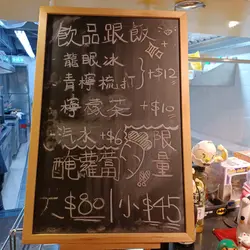 飲品跟飯:
·龍眼冰
·青檸梳打 }+$12
·檸蔑茶 }+$10
·汽水+$6
醃蘿蔔 限量
大$80 | 小$45